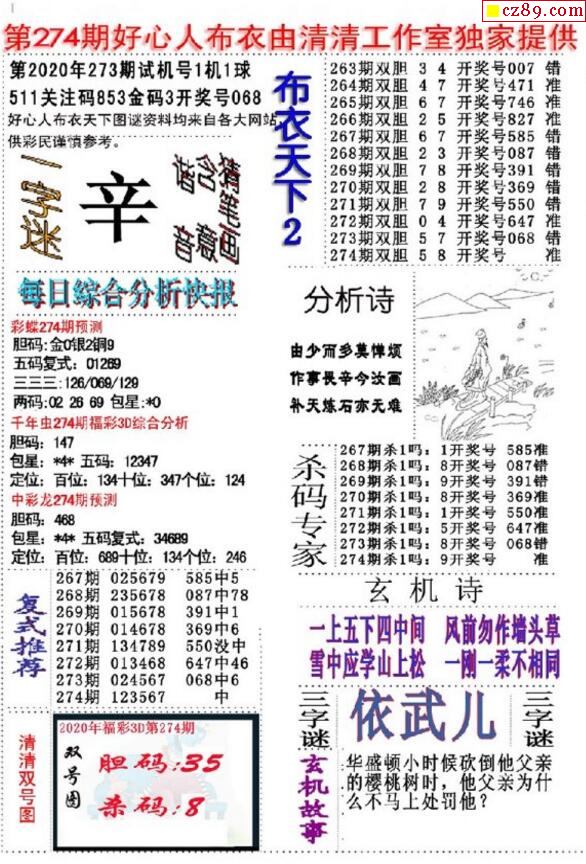 cz89.com
第274期好心人布衣由清清工作室独家提供
第2020年273期试机号1机1球
511关注码853金码3开奖号068
好心人布衣天下图谜资料均来自各大网站
供彩民谨慎参考。
一字谜
辛
每日综合分析快报
彩蝶274期预测
胆码:金0银2铜9
五码复式：01269
三三三:126/069/129
两码:02 26 69 包星:*0
千年虫274期福彩3D综合分析
胆码：147
包星：*4* 五码：12347
定位：百位：134十位：347个位：124
中彩龙274期预测
胆码：468
包星：*4* 五码复式：34689
定位：百位：689十位：134个位：246
复式推荐
267期 025679 585中5
268期 235678 087中78
269期 015678 391中1
270期 014678 369中6
271期 134789 550没中
272期 013468 647中46
273期 024567 068中6
274期 123567 中
清清双号图
2020年福彩3D第274期
双号图
胆码:35
杀码:8
布衣天下2
263期双胆 3 4 开奖号007 错
264期双胆 4 7 开奖号471 准
265期双胆 6 7 开奖号746 准
266期双胆 2 5 开奖号827 准
267期双胆 6 7 开奖号585 错
268期双胆 2 3 开奖号087 错
269期双胆 7 8 开奖号391 错
270期双胆 2 8 开奖号369 错
271期双胆 7 9 开奖号550 错
272期双胆 0 4 开奖号647 准
273期双胆 5 7 开奖号068 错
274期双胆 5 8 开奖号 准
分析诗
由少而多莫惮烦
作事畏辛今汝画
补天炼石亦无难
杀码专家
267期杀1吗：1开奖号 585准
268期杀1吗：8开奖号 087错
269期杀1吗：9开奖号 391错
270期杀1吗：8开奖号 369准
271期杀1吗：1开奖号 550准
272期杀1吗：5开奖号 647准
273期杀1吗：8开奖号 068错
274期杀1吗：9开奖号 准
玄机诗
一上五下四中间 风前勿作墙头草
雪中应学山上松 一刚一柔不相同
三字谜
依武儿
三字谜
玄机故事
华盛顿小时候砍倒他父亲
的樱桃树时，他父亲为什
么不马上处罚他？